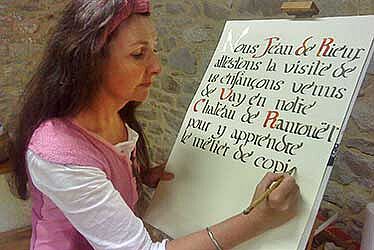 Nous Jean de Rieux
attestons la visite de
18 enfançons venus
de Vay en notre
Château de Ranrouët
pour y apprendre
le métier de copi